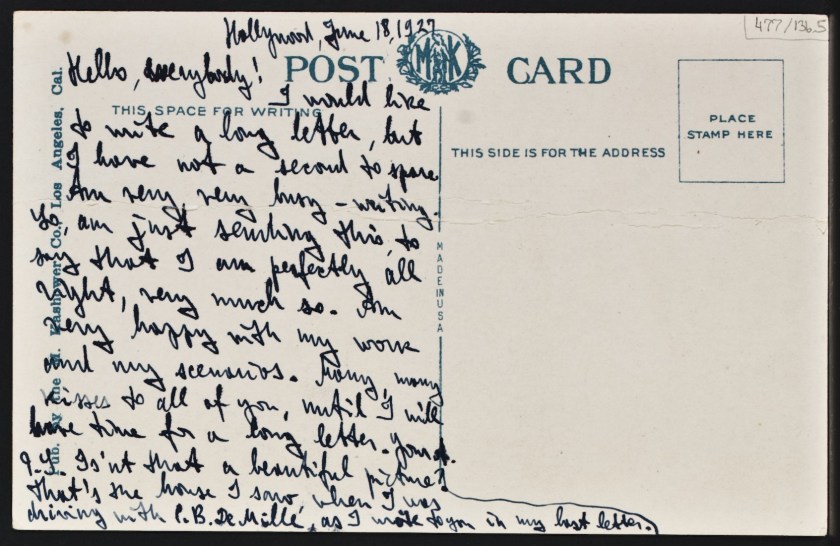 Hollywood, June 18, 1927
477/136.5
Hello, everybody!
POST CARD
M K
THIS SPACE FOR WRITING
I would like
to write a long letter, but
I have not a second to spare
Am very, very busy – writing.
So, am just sending this to
say that I am perfectly all
right, very much so. Am
very happy with my work
and my scenarios. Many, many
kisses to all of you, until I will
have time for a long letter. yours.
P.S. Is'nt that a beautiful picture?
That's the house I saw, when I was
driving with C.B. De Mille, as I wrote to you in my last letter.
THIS SIDE IS FOR THE ADDRESS
PLACE
STAMP HERE
MADE IN USA
Pub. by the M. Kashower Co., Los Angeles, Cal.